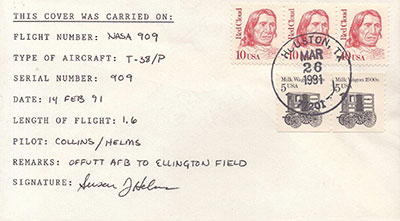 THIS COVER WAS CARRIED ON:
FLIGHT NUMBER: NASA 909
TYPE OF AIRCRAFT: T-38/P
SERIAL NUMBER: 909
DATE: 14 FEB 91
LENGTH OF FLIGHT: 1.6
PILOT: COLLINS/HELMS
REMARKS: OFFUTT AFB TO ELLINGTON FIELD
SIGNATURE: Susan J Helms
Red Cloud
10USA
Red Cloud
10
Red Cloud
10USA
HOUSTON, TX
MAR
26
1991
Milk Wagon
5
USA
Milk Wagon 1900s
5 USA